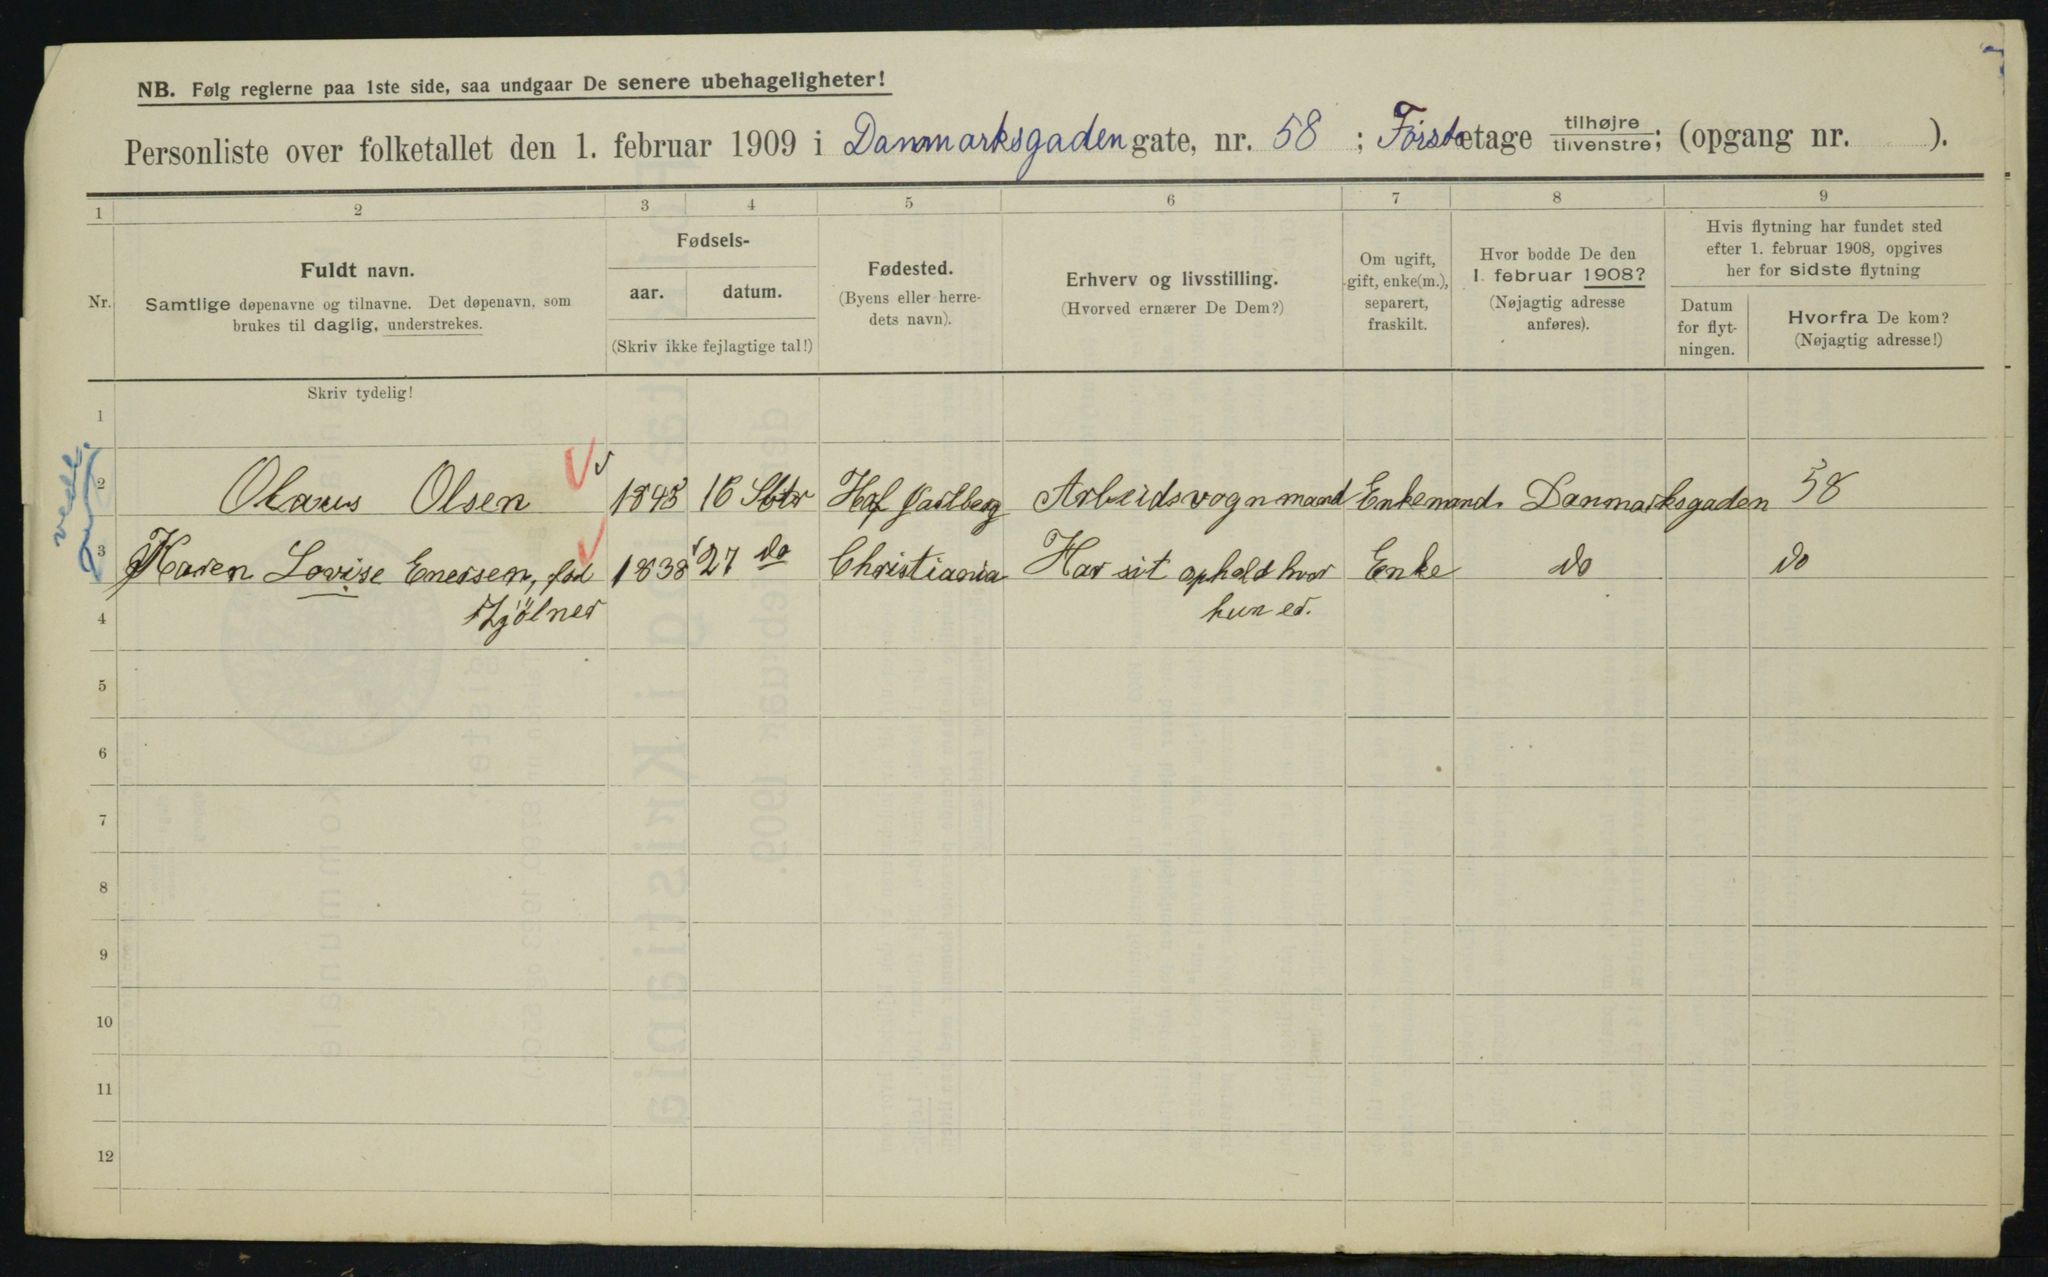 NB. Følg reglerne paa 1ste side, saa undgaar De senere ubehageligheter!
Personliste over folketallet den 1. februar 1909 i Danmarksgaden gate, nr. 58 ; Første etage tilhøjre tilvenstre; (opgang nr. ).
1 2 3 4 5 6 7 8 9
Nr.
Fuldt navn.
Samtlige døpenavne og tilnavne. Det døpenavn, som
brukes til daglig, understrekes.
Fødsels-
aar. datum.
(Skriv ikke fejlagtige tal!)
Fødested.
(Byens eller herre-
dets navn).
Erhverv og livsstilling.
(Hvorved ernærer De Dem?)
Om ugift,
gift, enke(m.),
separert,
fraskilt.
Hvor bodde De den
1. februar 1908?
(Nøjagtig adresse
anføres).
Hvis flytning har fundet sted
efter 1. februar 1908, opgives
her for sidste flytning
Datum
for flyt-
ningen.
Hvorfra De kom?
(Nøjagtig adresse!)
Skriv tydelig!
1
2 Olaus Olsen 1845 16 Sbtr Jarlberg Arbeidsvognmand Enkemand. Danmarksgaden 58
3 Karen Lovise Enersen, fød 1838 27 do Christiania Har sit ophold hvor Enke do do
4 hun er.
5
6
7
8
9
10
11
12